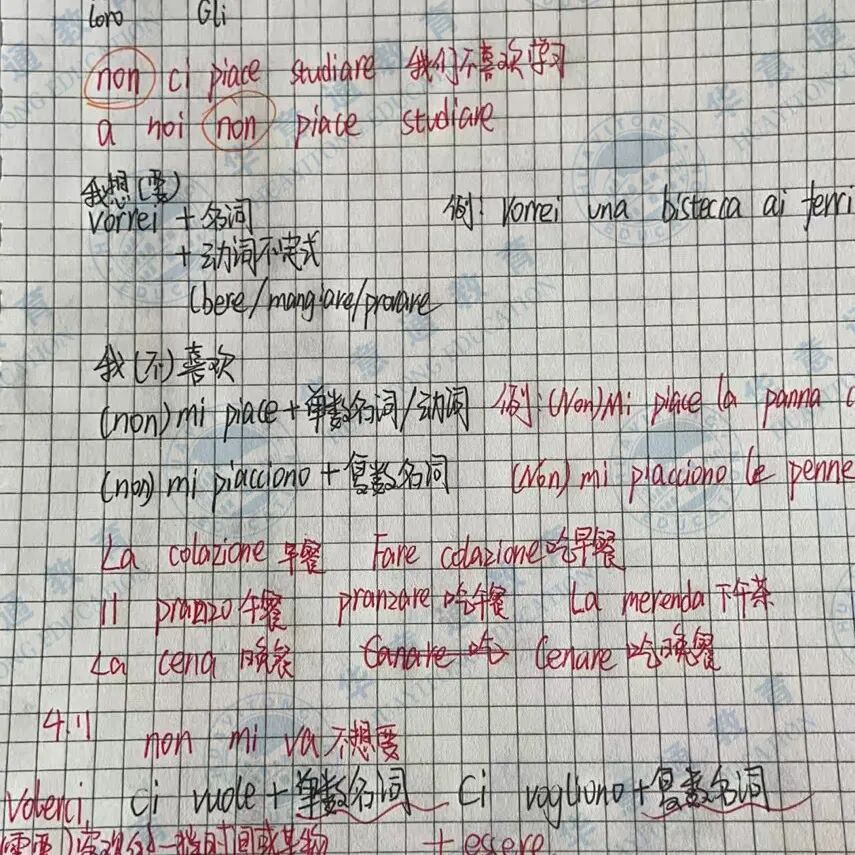 loro Gli
non ci piace studiare 我们不喜欢学习
a noi non piace studiare
我想(要)
vorrei + 名词 例: vorrei una bistecca ai ferri
+ 动词不定式
(bere/mangiare/provare
我(不)喜欢
(non) mi piace + 单数名词/动词 例: (Non) Mi piace la panna c
(non) mi piacciono + 复数名词 (Non) mi piacciono le penne
La colazione 早餐 Fare colazione 吃早餐
Il pranzo 午餐 pranzare 吃午餐 La merenda 下午茶
La cena 晚餐 Canare 吃 Cenare 吃晚餐
4.11 non mi va 不想要
Volerci Ci vuole + 单数名词 Ci vogliono + 复数名词
(需要) 一段时间或某物 + essere
华意通教育
HUAYITONG EDUCATION